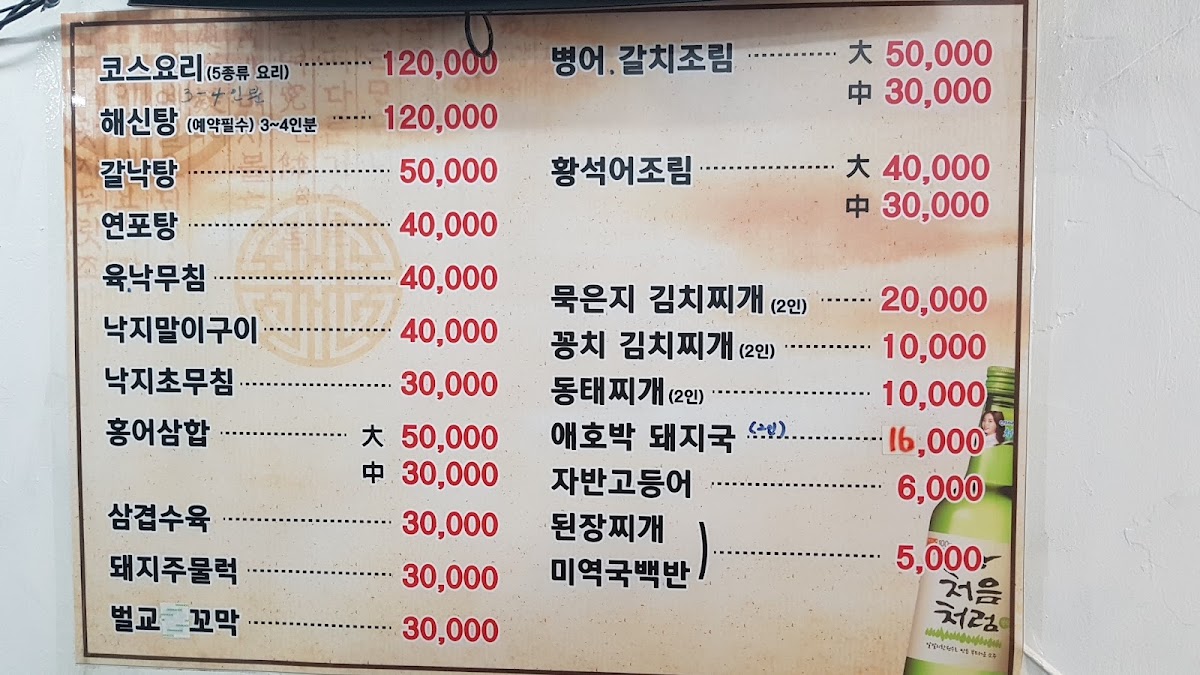 코스요리(5종류 요리) 120,000
3-4인분
해신탕 (예약필수) 3~4인분 120,000
갈낙탕 50,000
연포탕 40,000
육.낙무침 40,000
낙지말이구이 40,000
낙지초무침 30,000
홍어삼합 大 50,000
中 30,000
삼겹수육 30,000
돼지주물럭 30,000
벌교 꼬막 30,000
병어.갈치조림 大 50,000
中 30,000
황석어조림 大 40,000
中 30,000
묵은지 김치찌개 (2인) 20,000
꽁치 김치찌개 (2인) 10,000
동태찌개 (2인) 10,000
애호박 돼지국 (2인) 16,000
자반고등어 6,000
된장찌개
미역국백반 ) 5,000
처음
처럼